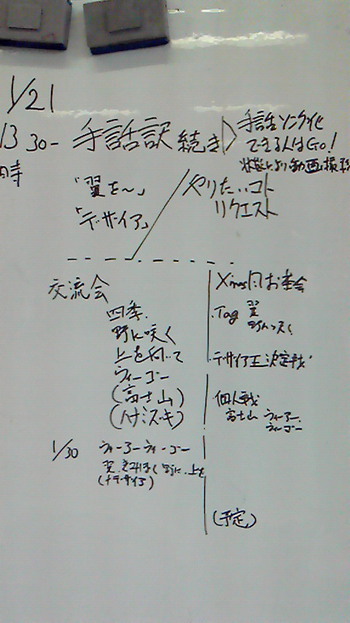 1/21
13 30- 手話訳 続き
手話ソング化
できる人はGo!
「翼を～」
「デザイア」
やりたいコト
リクエスト
交流会
四季
野に咲く
上を向いて
ウィーゴー
(富士山)
(ハナミズキ)
Xmas 月 お茶会
Tag 翼
デザイア王決定戦
個人戦
富士山 ウィーアー
ウィーゴー
1/30 ウィーアーウィーゴー
(デザイア)
(予定)